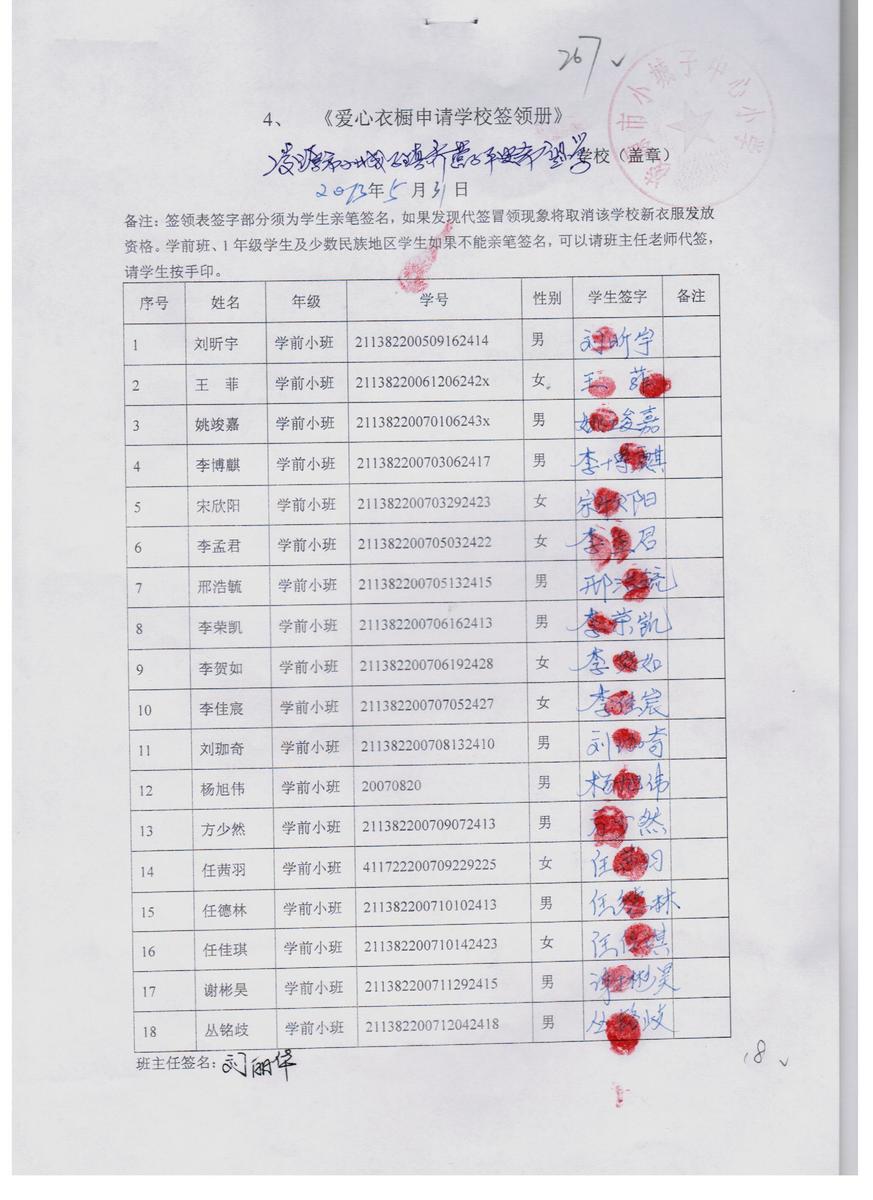 267
市小城子中心小学
4、 《爱心衣橱申请学校签领册》
凌源市小城子镇 希望小学 学校（盖章）
2013年5月31日
备注：签领表签字部分须为学生亲笔签名，如果发现代签冒领现象将取消该学校新衣服发放
资格。学前班、1年级学生及少数民族地区学生如果不能亲笔签名，可以请班主任老师代签，
请学生按手印。
序号 姓名 年级 学号 性别 学生签字 备注
1 刘昕宇 学前小班 211382200509162414 男 刘昕宇
2 王 菲 学前小班 21138220061206242x 女。 王 菲
3 姚竣嘉 学前小班 21138220070106243x 男 姚竣嘉
4 李博麒 学前小班 211382200703062417 男 李博麒
5 宋欣阳 学前小班 211382200703292423 女 宋欣阳
6 李孟君 学前小班 211382200705032422 女 李孟君
7 邢浩毓 学前小班 211382200705132415 男 邢浩毓
8 李荣凯 学前小班 211382200706162413 男 李荣凯
9 李贺如 学前小班 211382200706192428 女 李贺如
10 李佳宸 学前小班 211382200707052427 女 李佳宸
11 刘珈奇 学前小班 211382200708132410 男 刘珈奇
12 杨旭伟 学前小班 20070820 男 杨旭伟
13 方少然 学前小班 211382200709072413 男 方少然
14 任茜羽 学前小班 411722200709229225 女 任茜羽
15 任德林 学前小班 211382200710102413 男 任德林
16 任佳琪 学前小班 211382200710142423 女 任佳琪
17 谢彬昊 学前小班 211382200711292415 男 谢彬昊
18 丛铭歧 学前小班 211382200712042418 男 丛铭歧
班主任签名：刘丽华
18